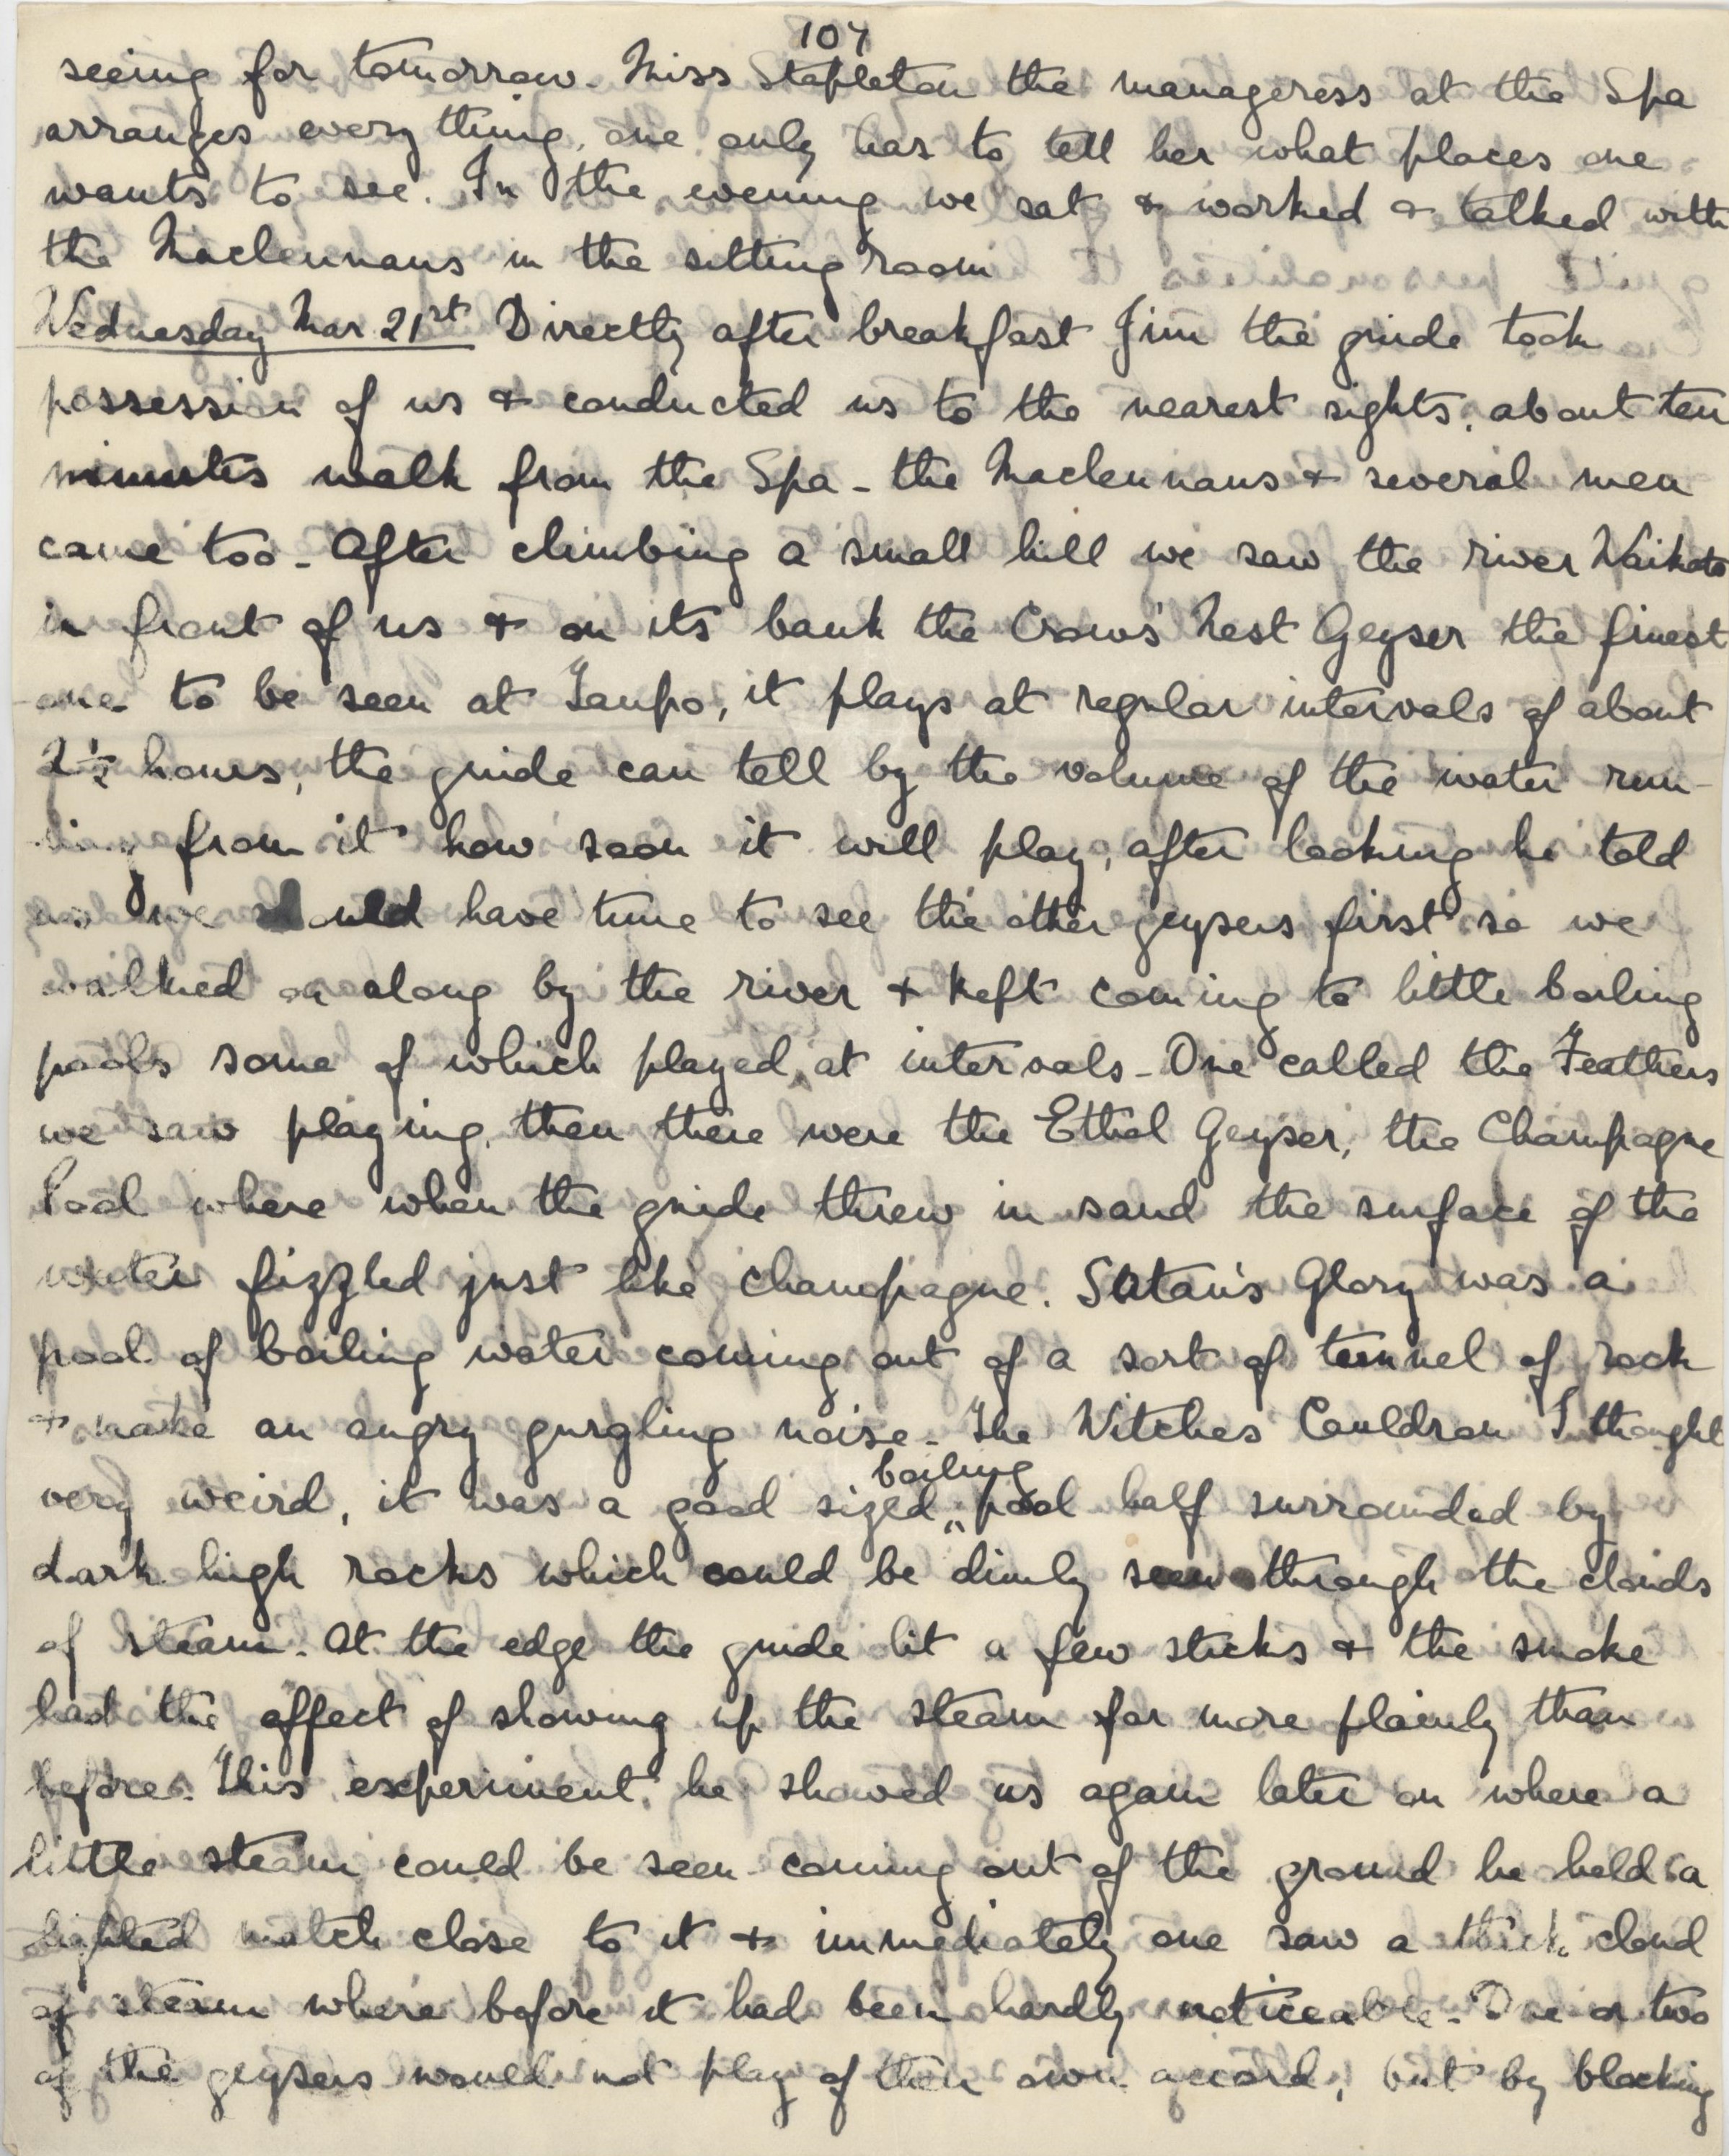 107
seeing for tomorrow. Miss Stapleton the manageress at the Spa
arranges every thing, one only has to tell her what places one
wants to see. In the evening we sat & worked & talked with
the Maclennans in the sitting room
Wednesday Mar 21st Directly after breakfast Jim the guide took
possession of us & conducted us to the nearest sights, about ten
minutes walk from the Spa - the Maclennans & several men
came too. After climbing a small hill we saw the river Waikato
in front of us & on its bank the Crows' Nest Geyser the finest
one to be seen at Taupo, it plays at regular intervals of about
2½ hours, the guide can tell by the volume of the water run-
ning from it how soon it will play, after looking he told
us we should have time to see the other geysers first so we
walked on along by the river & kept coming to little boiling
pools some of which played at intervals - One called the Feathers
we saw playing, then there were the Ethel Geyser, the Champagne
Pool where when the guide threw in sand the surface of the
water fizzled just like champagne. Satan's Glory was a
pool of boiling water coming out of a sort of tunnel of rock
& make an angry gurgling noise - The Witches Cauldron I thought
very weird, it was a good sized boiling pool half surrounded by
dark high rocks which could be dimly seen through the clouds
of steam. At the edge the guide lit a few sticks & the smoke
had the affect of showing up the steam far more plainly than
before. This experiment he showed us again later on where a
little steam could be seen coming out of the ground he held a
lighted match close to it & immediately one saw a thick cloud
of steam where before it had been hardly noticeable. One or two
of the geysers would not play of their own accord, but by blocking